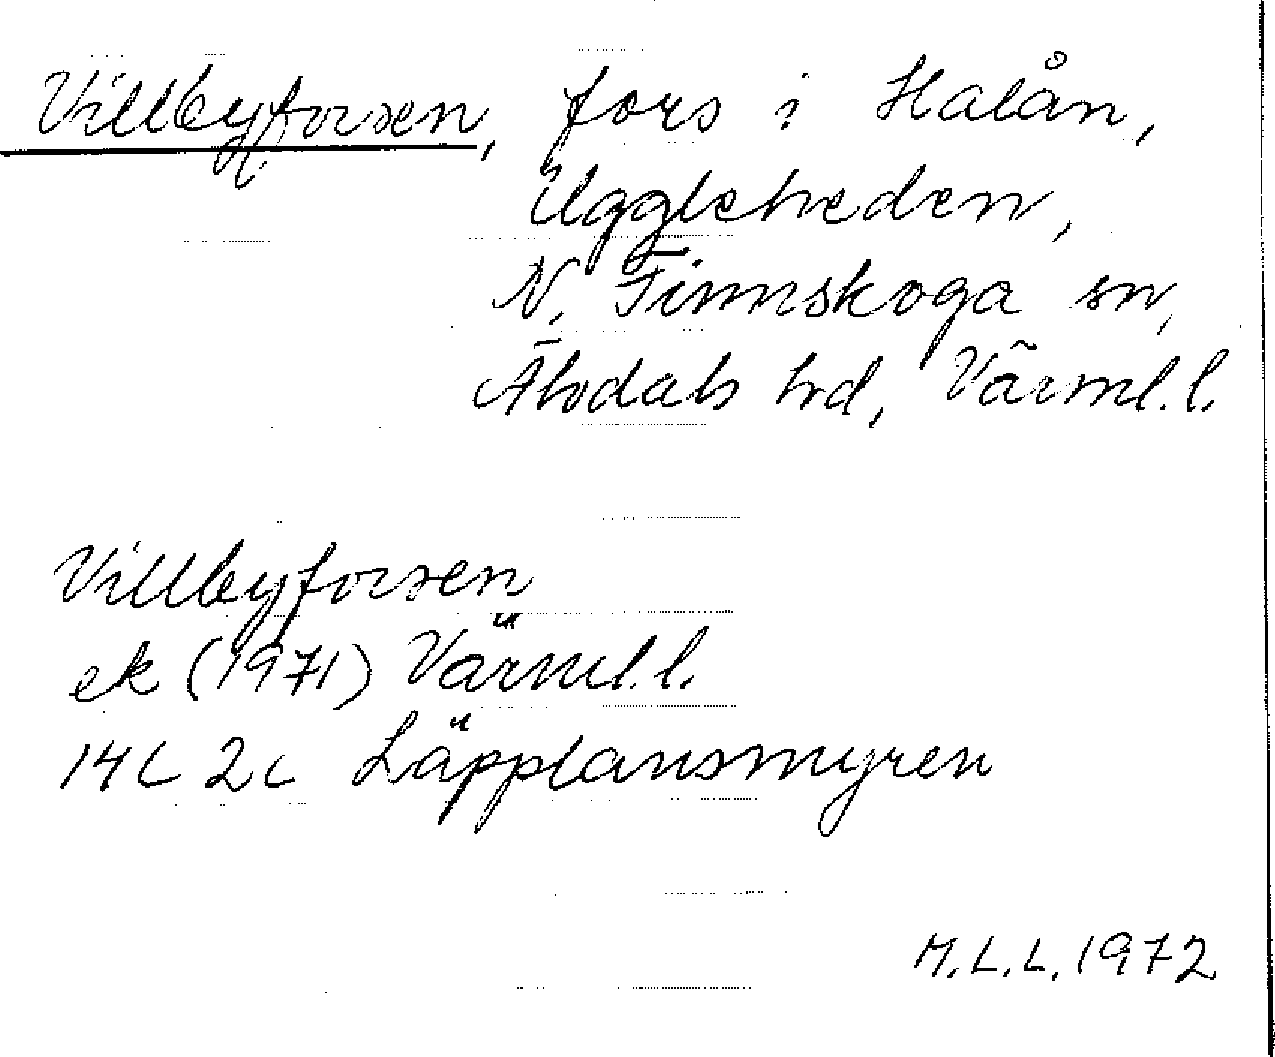 Villbyforsen, fors i Halån,
Uggleheden,
N. Finnskoga sn,
Älvdals hd, Värml.l.
Villbyforsen
ek (1971) Värml.l.
14C 2c Läpplansmyren
M.L.L. 1972